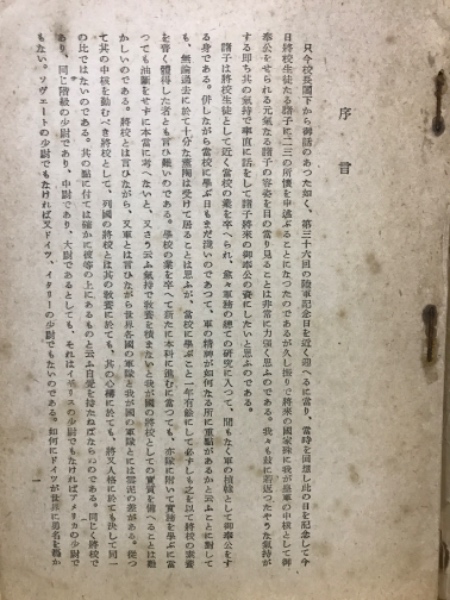 序言
只今校長閣下から御話のあつた如く、第三十六回の陸軍記念日を近く迎へるに當り、當時を回想し此の日を記念して今
日將校生徒たる諸子に二三の所懷を申述ぶることになつたのであるが久し振りで將來の國家殊に我が皇軍の中核として御
奉公をせられる元氣なる諸子の容姿を目の當り見ることは非常に力强く思ふのである。我々も玆に若返つたやうな氣持が
する卽ち其の氣持で率直に話をして諸子將來の御奉公の資にしたいと思ふのである。
諸子は將校生徒として近く當校の業を卒へられ、愈々軍務の總ての硏究に入つて、間もなく軍の楨幹として御奉公をす
る身である。併しながら當校に學ぶ日もまだ淺いのであつて、軍の精神が如何なる所に重點があるかと云ふことに對して
も、無論過去に於て十分な薰陶は受けて居ることは思ふが、當校に學ぶこと一年有餘にして必ずしも之を以て將校の素養
を普く體得した者とも言ひ難いのである。學校の業を卒へて新たに本科に進むに當つても、亦隊に附いて實務を學ぶに當
つても油斷をせずに本當に考へないと、又さう云ふ氣持で敎養を積まないと我が國の將校としての實質を備へることは難
かしいのである。將校とは言ひながら、又軍とは言ひながら世界各國の軍隊と我が國の軍隊とには雲泥の差がある。從つ
て其の中核を勤むべき將校として、列國の將校とは其の敎養に於ても、其の心構に於ても、將又人格に於ても決して同一
の比ではないのである。其の點に付ては確かに彼等の上にあるものと云ふ自覺を持たねばならのである。同じく將校で
あり、同じ階級の少尉であり、中尉であり、大尉であるとしても、それはイギリスの少尉でもなければアメリカの少尉で
もない。ソヴェートの少尉でもなければ又ドイツ、イタリーの少尉でもないのである。如何にドイツが世界に勇名を轟か
一